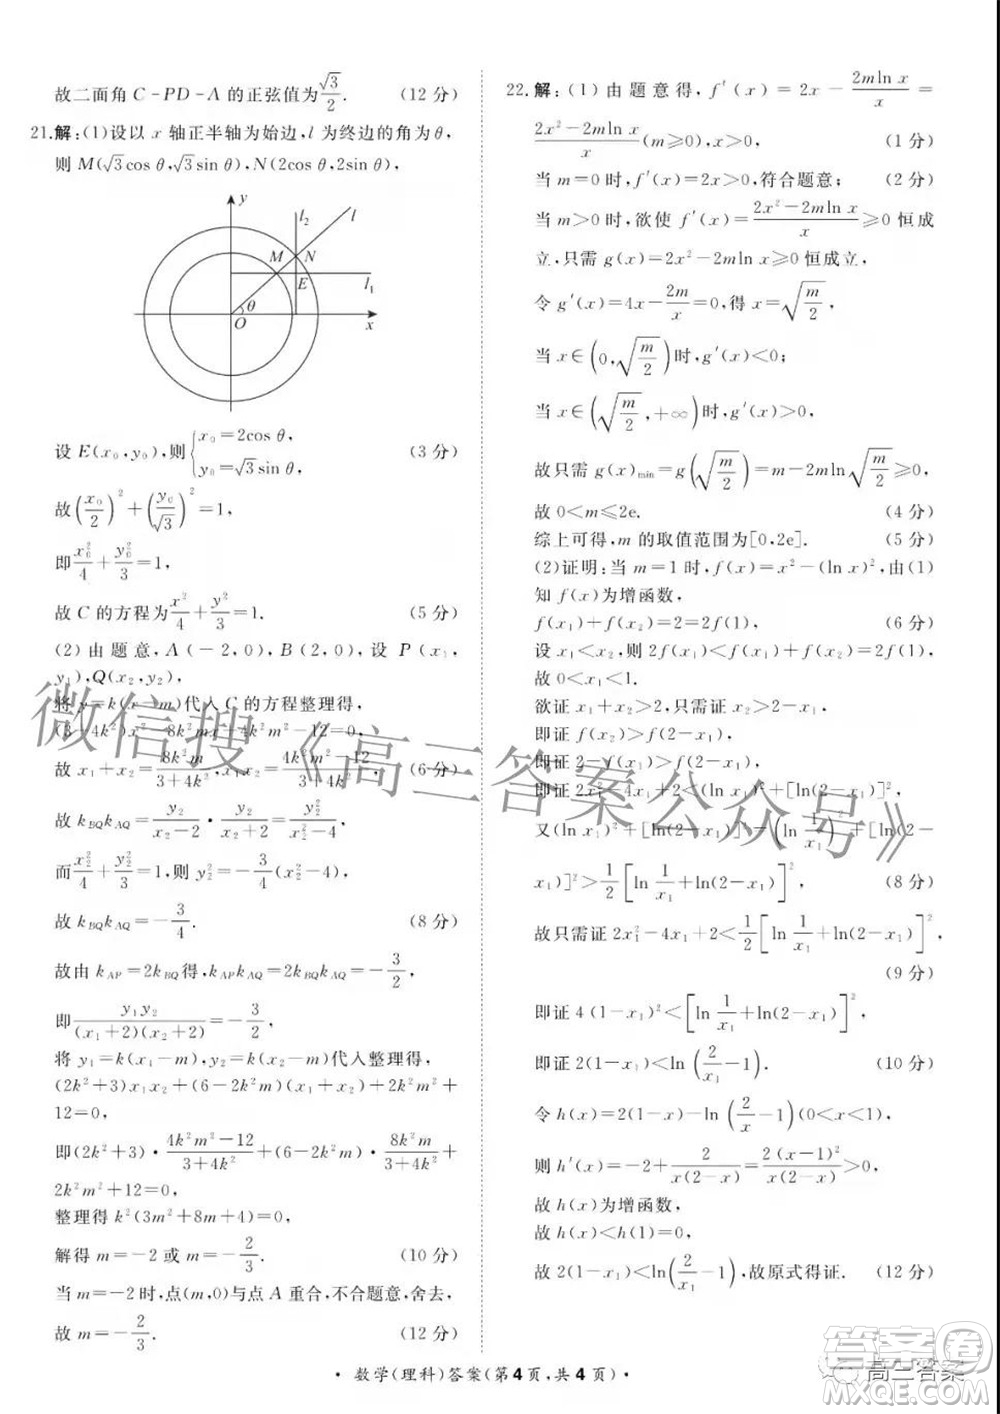 故二面角 C-PD-A 的正弦值为√3/2. (12 分)
21.解:(1)设以 x 轴正半轴为始边,l 为终边的角为 θ,
则 M(√3cos θ,√3sin θ),N(2cos θ,2sin θ),
y
l₂
l
M
N
E
l₁
θ
O
x
设 E(x₀,y₀),则{x₀=2cos θ, y₀=√3sin θ, (3 分)
故(x₀/2)²+(y₀/√3)²=1,
即x₀²/4+y₀²/3=1,
故 C 的方程为x²/4+y²/3=1. (5 分)
(2) 由 题 意, A(-2,0), B(2,0), 设 P(x₁,
y₁),Q(x₂,y₂),
将 y=k(x-m)代入 C 的方程整理得,
(3+4k²)x²-8k²mx+4k²m²-12=0,
故 x₁+x₂=8k²m/(3+4k²),x₁x₂=(4k²m²-12)/(3+4k²), (6 分)
故 k_BQ k_AQ=y₂/(x₂-2)·y₂/(x₂+2)=y₂²/(x₂²-4),
而x₂²/4+y₂²/3=1,得 y₂²=-3/4(x₂²-4),
故 k_BQ k_AQ=-3/4. (8 分)
故由 k_AP=2k_BQ得,k_AP k_AQ=2k_BQ k_AQ=-3/2,
即y₁y₂/((x₁+2)(x₂+2))=-3/2,
将 y₁=k(x₁-m),y₂=k(x₂-m)代入整理得,
(2k²+3)x₁x₂+(6-2k²m)(x₁+x₂)+2k²m²+
12=0,
即(2k²+3)·(4k²m²-12)/(3+4k²)+(6-2k²m)·8k²m/(3+4k²)+
2k²m²+12=0,
整理得 k²(3m²+8m+4)=0,
解得 m=-2 或 m=-2/3. (10 分)
当 m=-2时,点(m,0)与点 A 重合,不合题意,舍去,
故 m=-2/3. (12 分)
22.解:(1)由题意得,f′(x)=2x-2mln x/x=
(2x²-2mln x)/x(m≥0),x>0, (1 分)
当 m=0 时,f′(x)=2x>0,符合题意; (2 分)
当 m>0 时,欲使 f′(x)=(2x²-2mln x)/x≥0 恒成
立,只需 g(x)=2x²-2mln x≥0 恒成立,
令 g′(x)=4x-2m/x=0,得 x=√(m/2),
当 x∈(0,√(m/2))时,g′(x)<0;
当 x∈(√(m/2),+∞)时,g′(x)>0,
故只需 g(x)min=g(√(m/2))=m-2mln√(m/2)≥0,
故 0<m≤2e. (4 分)
综上可得,m 的取值范围为[0,2e]. (5 分)
(2)证明:当 m=1 时,f(x)=x²-(ln x)²,由(1)
知 f(x)为增函数,
f(x₁)+f(x₂)=2=2f(1), (6 分)
设 x₁<x₂,则 2f(x₁)<f(x₁)+f(x₂)=2f(1),
故 0<x₁<1.
欲证 x₁+x₂>2,只需证 x₂>2-x₁,
即证 f(x₂)>f(2-x₁),
即证 2-f(x₁)>f(2-x₁), (7 分)
又(ln x₁)²+[ln(2-x₁)]²=(ln 1/x₁)²+[ln(2-
x₁)]²>1/2[ln 1/x₁+ln(2-x₁)]², (8 分)
故只需证 2x₁²-4x₁+2<1/2[ln 1/x₁+ln(2-x₁)]²,
(9 分)
即证 4(1-x₁)²<[ln 1/x₁+ln(2-x₁)]²,
即证 2(1-x₁)<ln(2/x₁-1). (10 分)
令 h(x)=2(1-x)-ln(2/x-1)(0<x<1),
则 h′(x)=-2+2/(x(2-x))=2(x-1)²/(x(2-x))>0,
故 h(x)为增函数,
故 h(x)<h(1)=0.
故 2(1-x₁)<ln(2/x₁-1),故原式得证. (12 分)
· 数学(理科)答案(第4页,共4页) ·
微信搜《高三答案公众号》
高三答案
答案圈
MXQE.COM